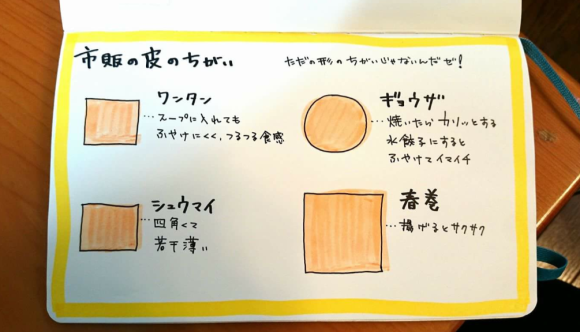 市販の皮のちがい
ただの形のちがいじゃないんだぜ!
ワンタン
…スープに入れても
ふやけにくく、つるつる食感
ギョウザ
…焼いたらカリッとする
水餃子にすると
ふやけてイマイチ
シュウマイ
…四角くて
若干薄い
春巻
…揚げるとサクサク